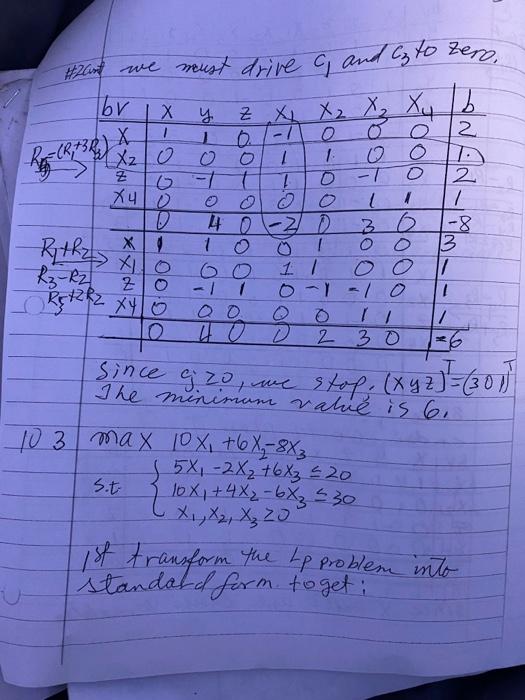 #2Cont we must drive c₁ and c₃ to zero.
bv x y z x₁ x₂ x₃ x₄ b
x 1 1 0 -1 0 0 0 2
x₂ 0 0 0 1 1 0 0 1
z 0 -1 1 1 0 -1 0 2
x4 0 0 0 0 0 1 1 1
0 4 0 -2 0 3 0 -8
R₁+R₂ x 1 1 0 0 1 0 0 3
R₃-R₂ x₁ 0 0 0 1 1 0 0 1
z 0 -1 1 0 -1 -1 0 1
R₅+2R₂ x4 0 0 0 0 0 1 1 1
0 4 0 0 2 3 0 -6
Since cⱼ≥0, we stop. (x y z)ᵀ=(3 0 1)ᵀ
The minimum value is 6.
10 3 max 10x₁ +6x₂-8x₃
s.t. { 5x₁ -2x₂ +6x₃ ≤ 20
10x₁ +4x₂ -6x₃ ≤ 30
x₁, x₂, x₃ ≥0
1st transform the Lp problem into
standard form to get: